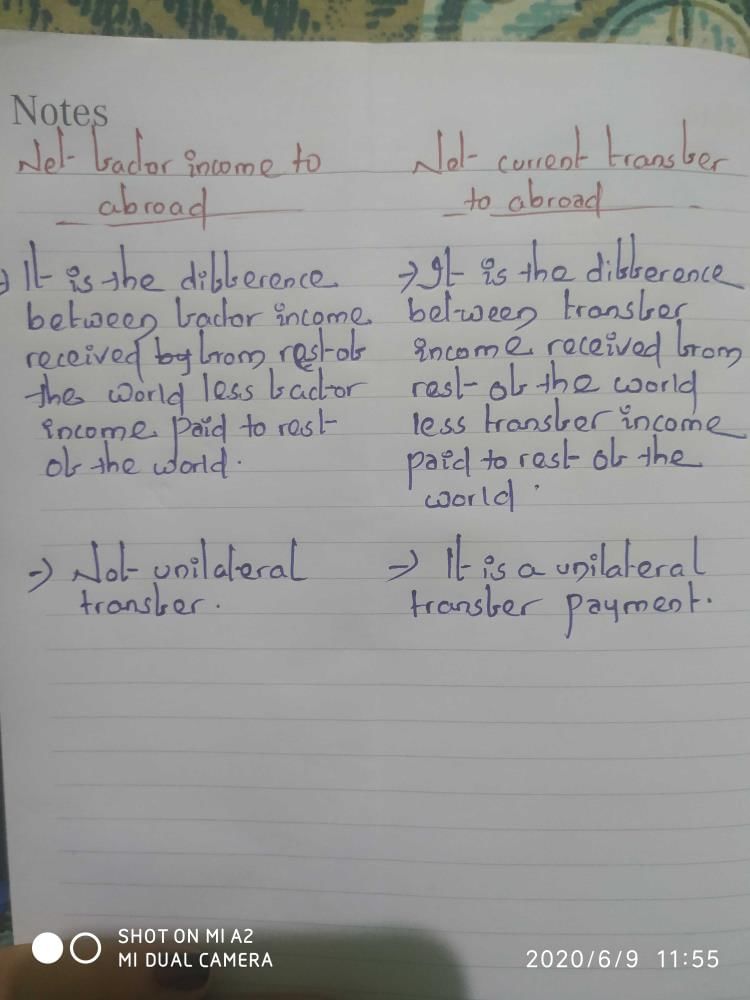 Notes
Net factor income to
abroad
→ It is the difference
between factor income
received by from rest of
the world less factor
income paid to rest
of the world.
→ Not unilateral
transfer.
Net current transfer
to abroad
→ It is the difference
between transfer
income received from
rest of the world
less transfer income
paid to rest of the
world.
→ It is a unilateral
transfer payment.
SHOT ON MI A2
MI DUAL CAMERA
2020/6/9 11:55